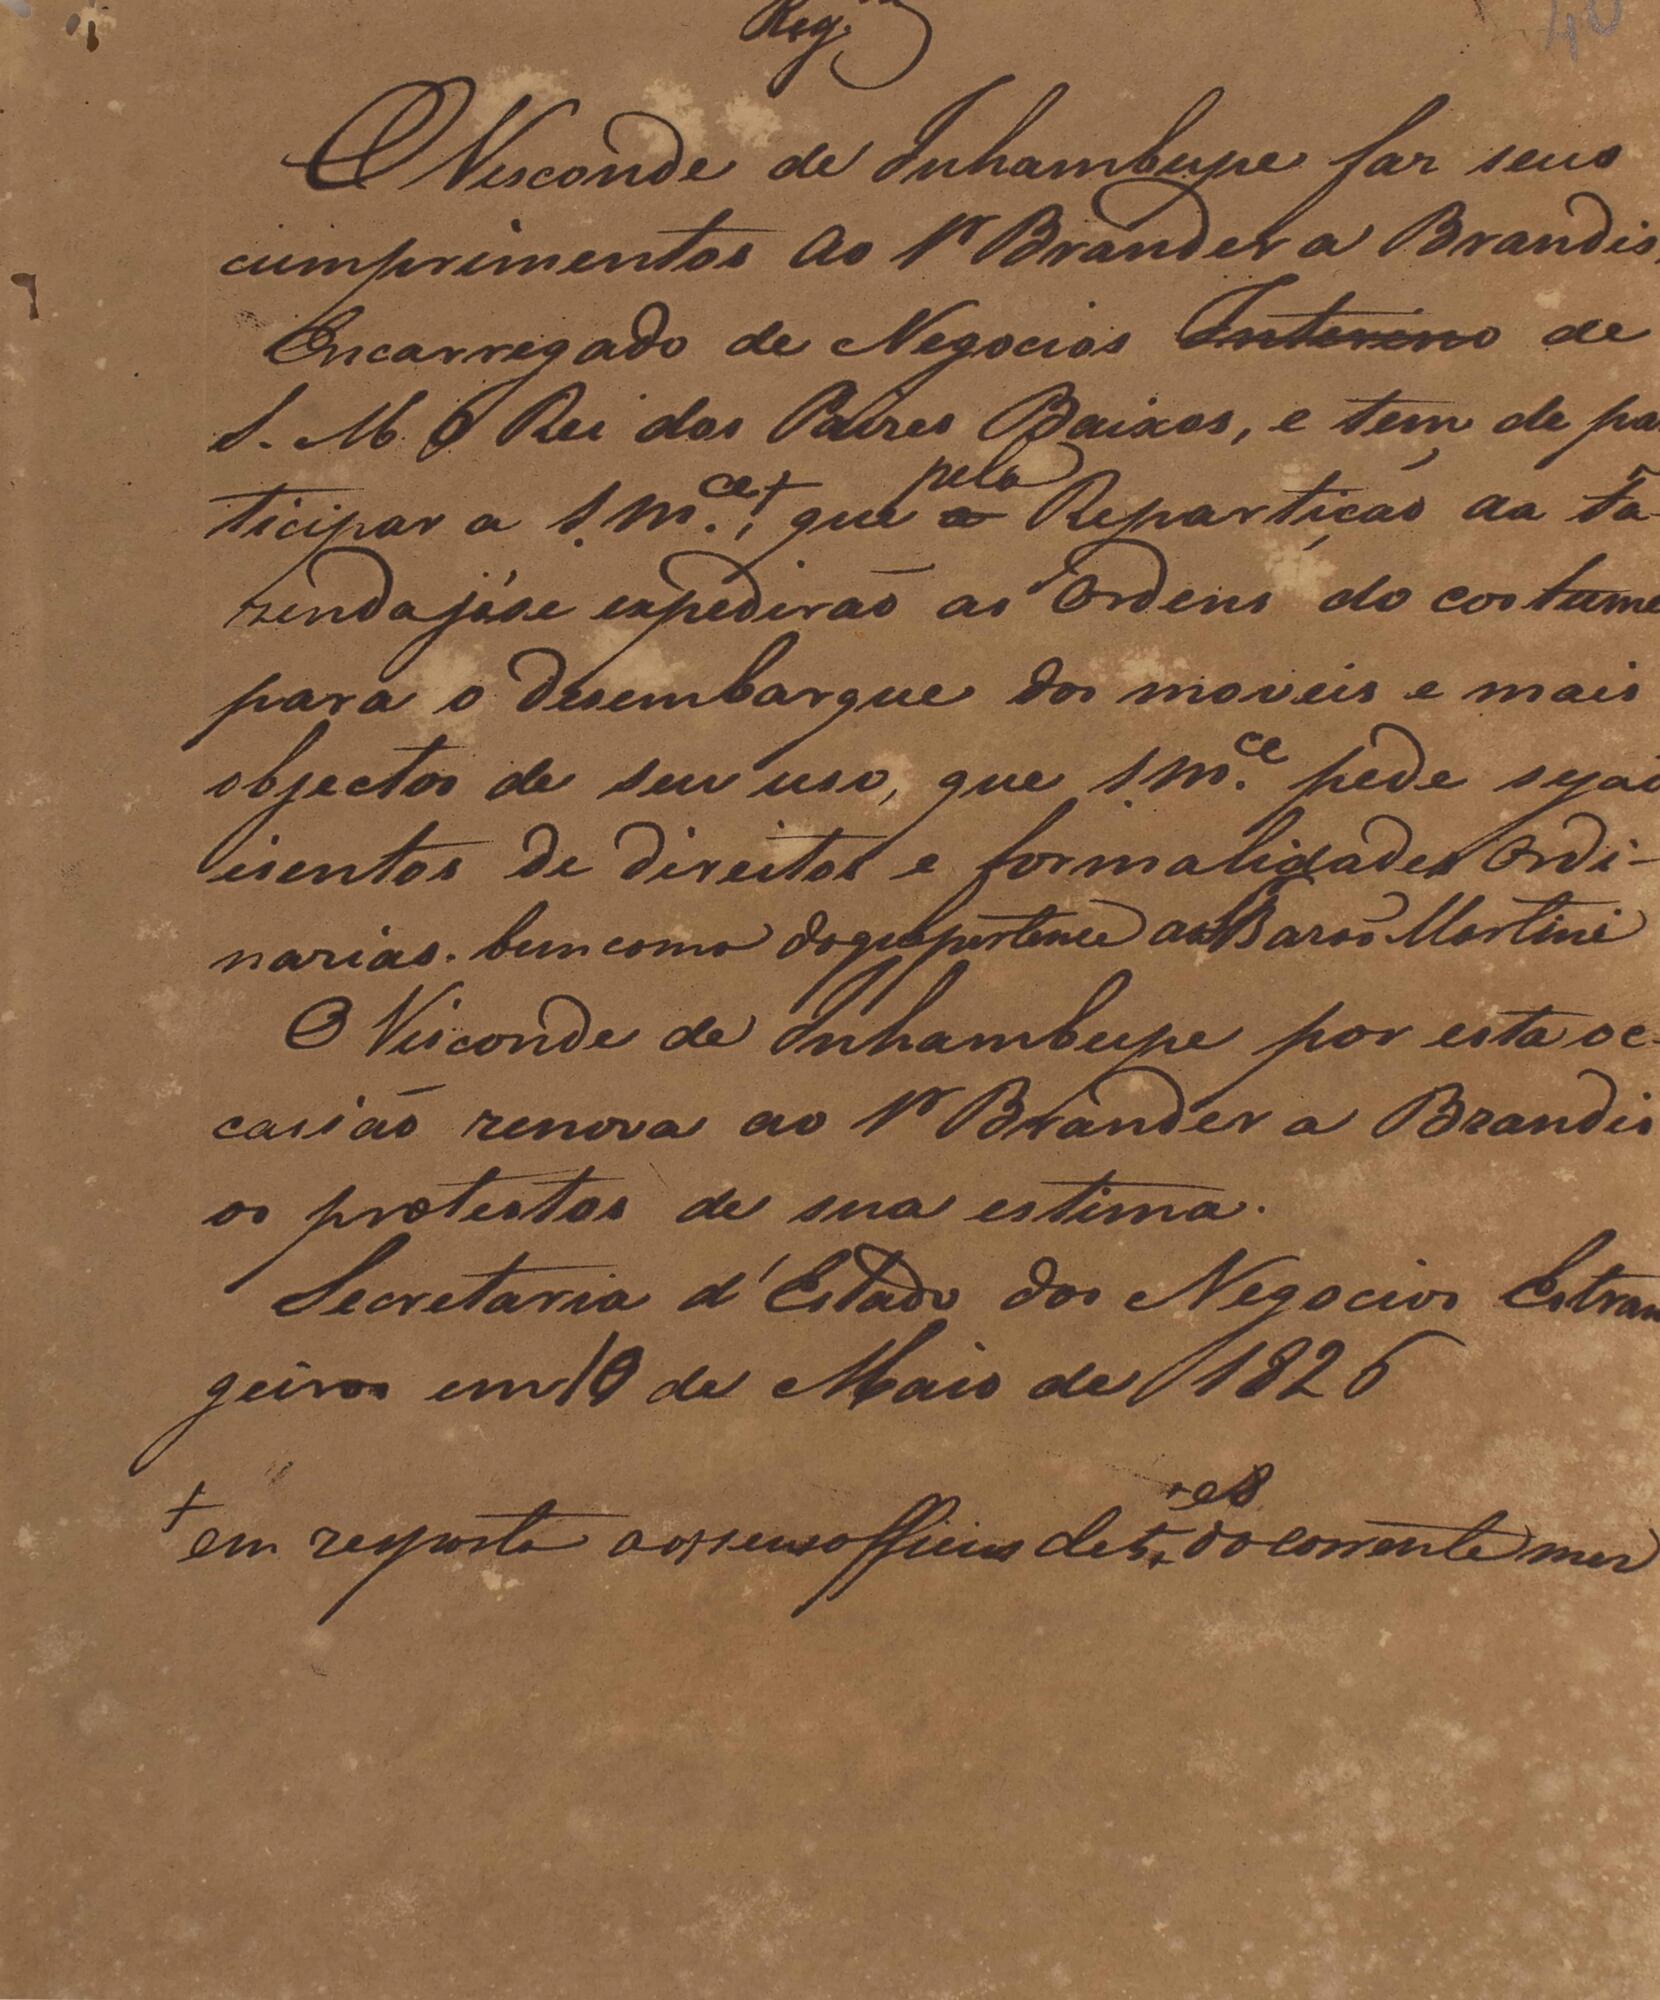 Reg.
40
O Visconde de Inhambupe faz seus
cumprimentos ao Sr Brander a Brandis,
Encarregado de Negocios Interino de
S. M. O Rei dos Paizes Baixos, e tem de par
ticipar a S. M.ce +, que a pela Repartição da Fa-
zenda já se expedirão as Ordens do costume
para o desembarque dos moveis e mais
objectos de seu uso, que S. M.ce pede sejão
isentos de direitos e formalidades Ordi-
narias. bem como do que pertence ao Barão Mortini
O Visconde de Inhambupe por esta oc-
casião renova ao Sr Brander a Brandis
os protestos de sua estima.
Secretaria d'Estado dos Negocios Estran
geiros em 10 de Maio de 1826
+ em resposta aos seus officios de do corrente mez